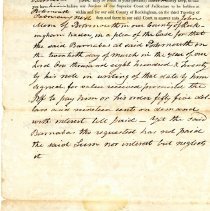 before our Justices of the Superior Court of Judicature to be holden at
Portsmouth in and for our said County of Rockingham, on the third
February next then and there in our said Court to answer unto John
of Bornmouth in our County of Rock-
ingham trader, in a plea of the Case for that
the said Barnabas at said Portsmouth on
the twentieth day of March in the year of our
Lord One thousand eight hundred & Twenty
by his note in writing of that date by him
signed for value received promised the
Plff to pay him or his order fifty five dol-
lars and nineteen cents on demand
with interest till paid - Yet the said
Barnabas tho requested has not paid
the said Sum nor interest but neglects
it